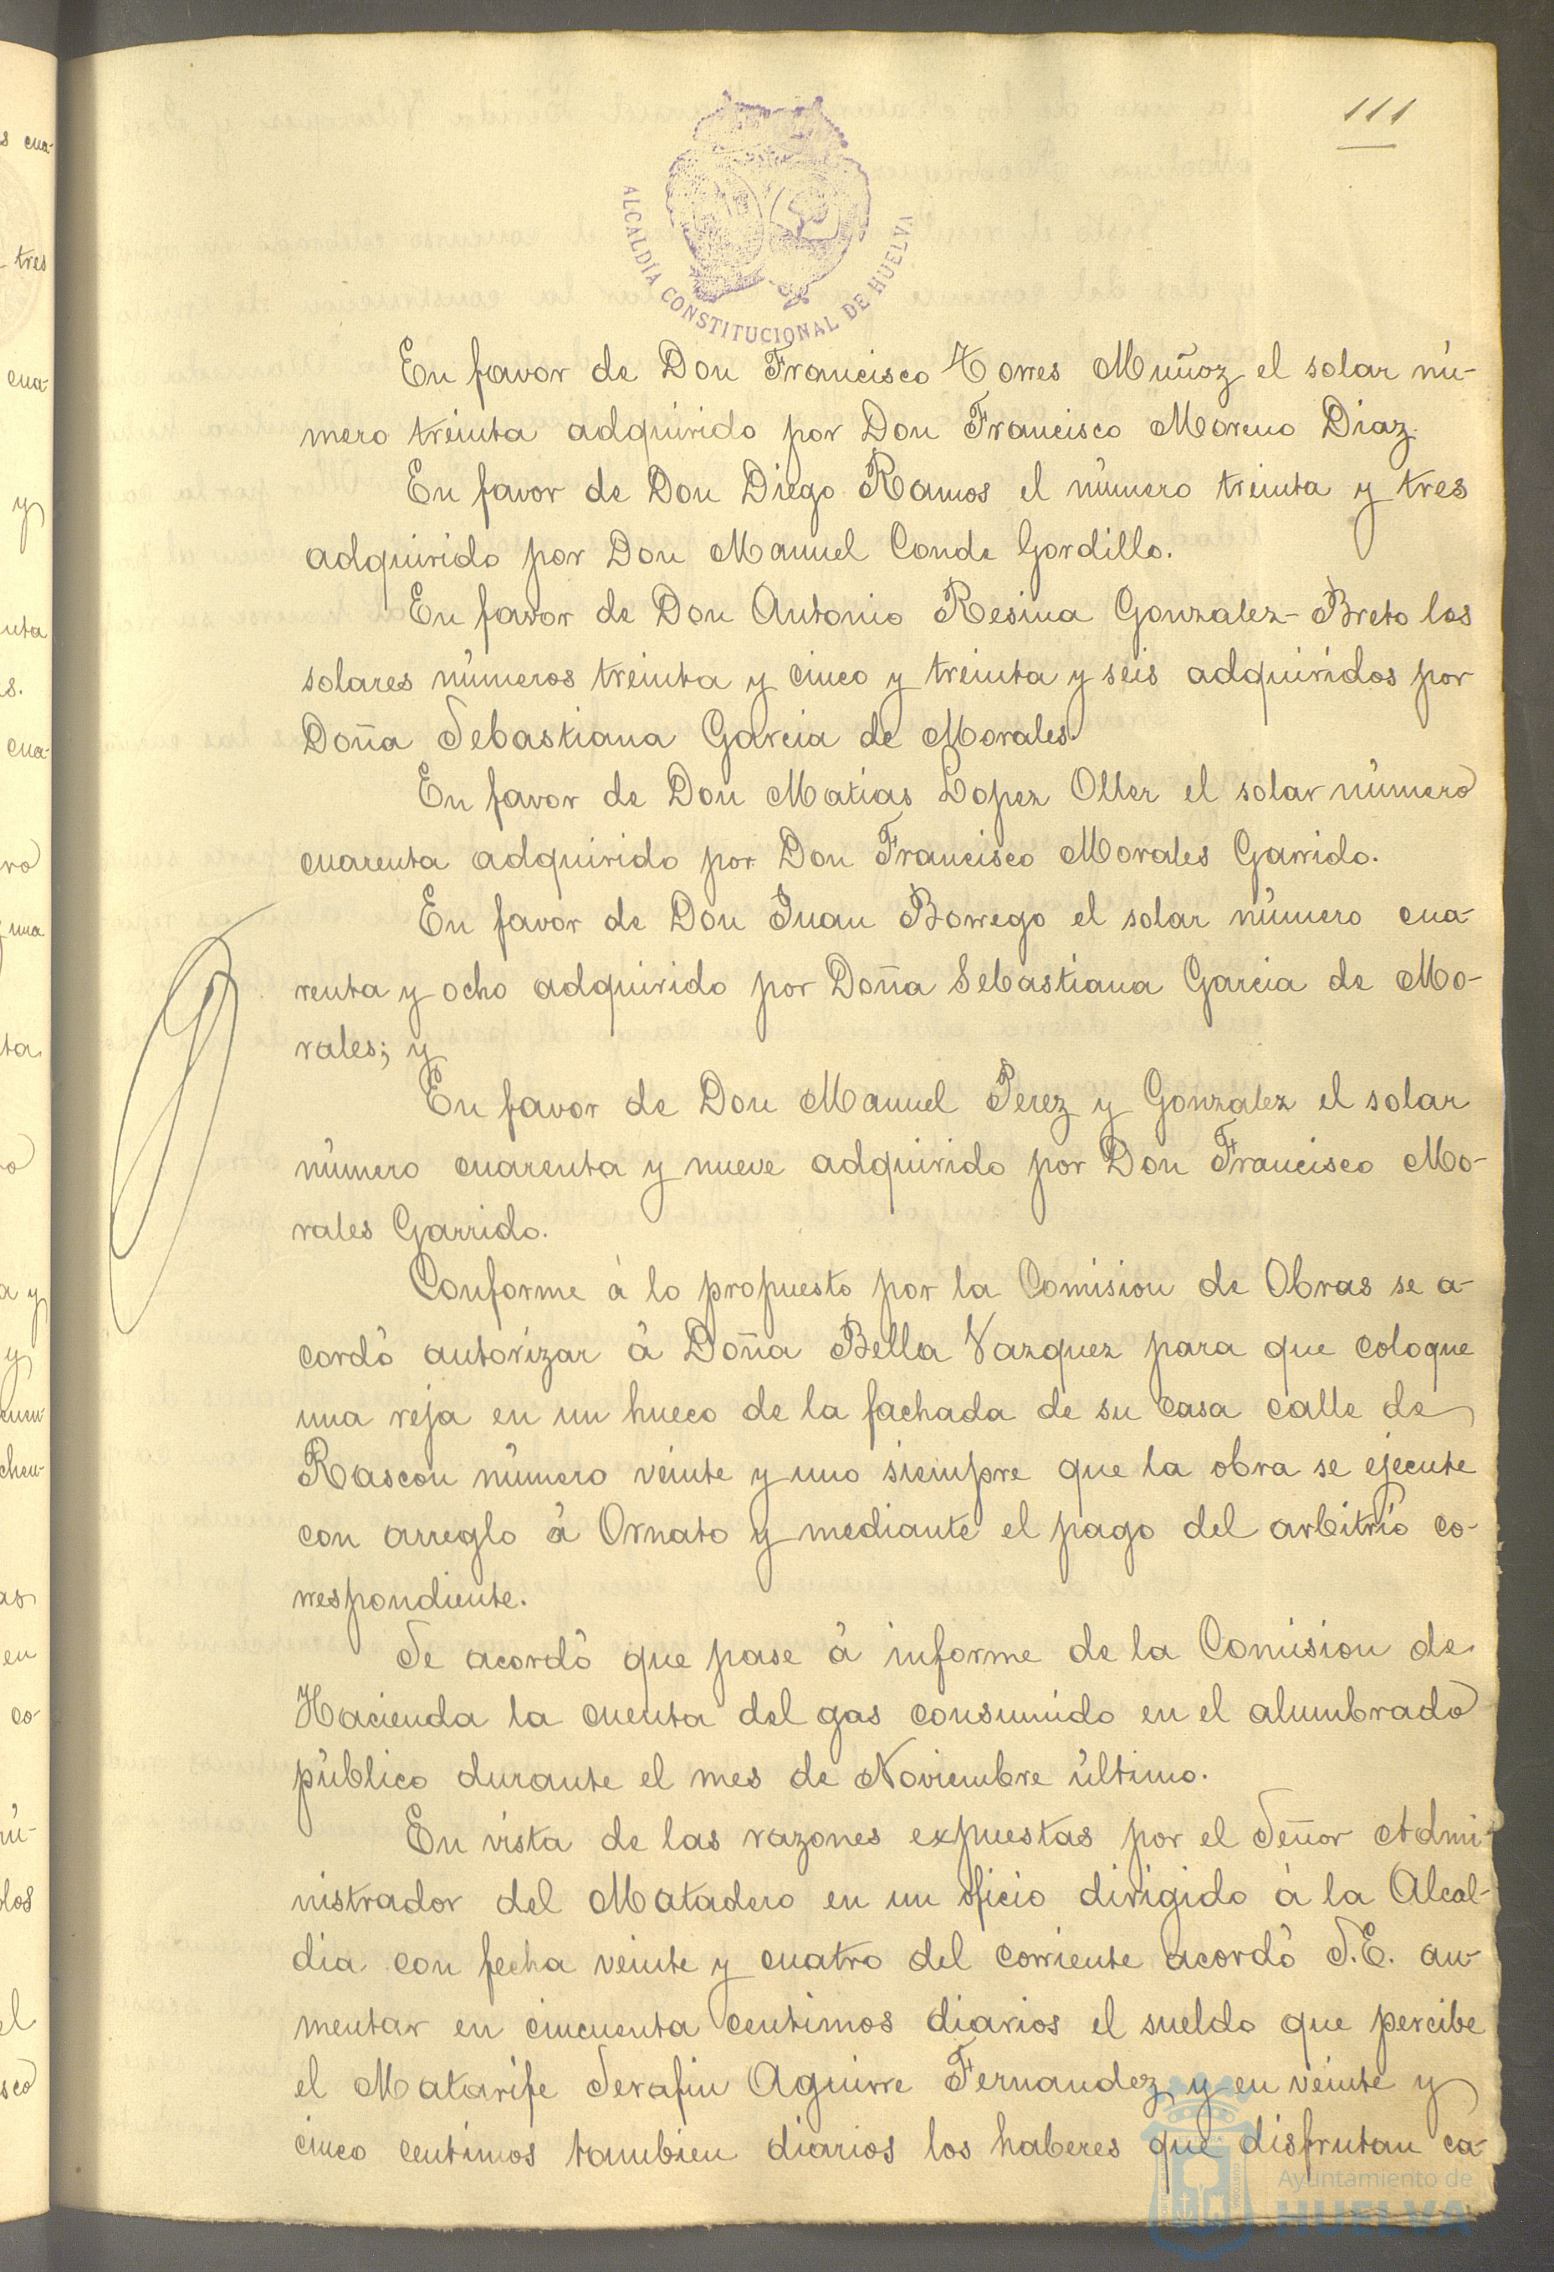 111
ALCALDÍA CONSTITUCIONAL DE HUELVA
En favor de Don Francisco Torres Muñoz el solar nú-
mero treinta adquirido por Don Francisco Moreno Diaz.
En favor de Don Diego Ramos el número treinta y tres
adquirido por Don Manuel Conde Gordillo.
En favor de Don Antonio Resina Gonzalez-Breto los
solares números treinta y cinco y treinta y seis adquiridos por
Doña Sebastiana Garcia de Morales.
En favor de Don Matias Lopez Oller el solar número
cuarenta adquirido por Don Francisco Morales Garrido.
En favor de Don Juan Borrego el solar número cua-
renta y ocho adquirido por Doña Sebastiana Garcia de Mo-
rales; y
En favor de Don Manuel Perez y Gonzalez el solar
número cuarenta y nueve adquirido por Don Francisco Mo-
rales Garrido.
Conforme á lo propuesto por la Comision de Obras se a-
cordó autorizar á Doña Bella Vazquez para que coloque
una reja en un hueco de la fachada de su casa calle de
Rascon número veinte y uno siempre que la obra se ejecute
con arreglo á Ornato y mediante el pago del arbitrio co-
rrespondiente.
Se acordó que pase á informe de la Comision de
Hacienda la cuenta del gas consumido en el alumbrado
público durante el mes de Noviembre último.
En vista de las razones expuestas por el Señor Admi-
nistrador del Matadero en un oficio dirigido á la Alcal-
dia con fecha veinte y cuatro del corriente acordó S.E. au-
mentar en cincuenta centimos diarios el sueldo que percibe
el Matarife Serafin Aguirre Fernandez y en veinte y
cinco centimos tambien diarios los haberes que disfrutan ca-
Ayuntamiento de
HUELVA